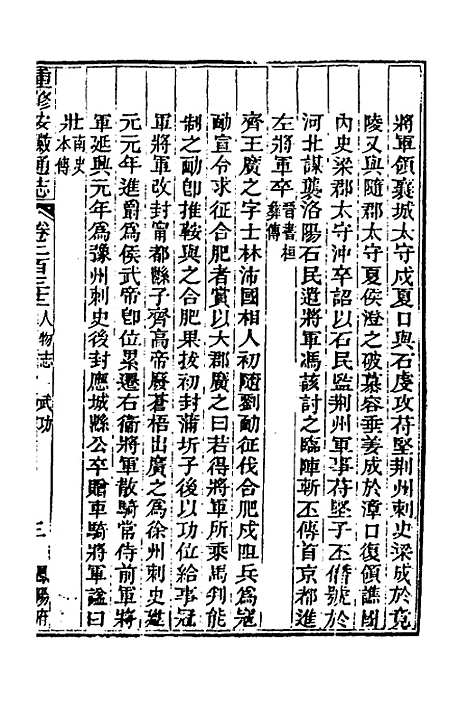 將軍領襄城太守戍夏口與石虔攻苻堅荆州刺史梁成於竟
陵又與隨郡太守夏侯澄之破慕容垂姜成於漳口復領譙國
內史梁郡太守沖卒詔以石民監荆州軍事苻堅子丕僭號於
河北謀襲洛陽石民遣將軍馮該討之臨陣斬丕傳首京都進
左將軍卒晉書桓彝傳
齊王廣之字士林沛國相人初隨劉勔征伐合肥戍主兵爲寇
勔宣令求征合肥者賞以大郡廣之曰若得將軍所乘馬判能
制之勔卽推鞍與之合肥果拔初封蒲圻子後以功位給事冠
軍將軍改封甯都縣子齊高帝廢蒼梧出廣之爲徐州刺史建
元元年進爵爲侯武帝卽位累遷右衞將軍散騎常侍前軍將
軍延興元年爲豫州刺史後封應城縣公卒贈車騎將軍諡曰
壯南史本傳
重修安徽通志 卷二百三十三 人物志 武功 三 鳳陽府